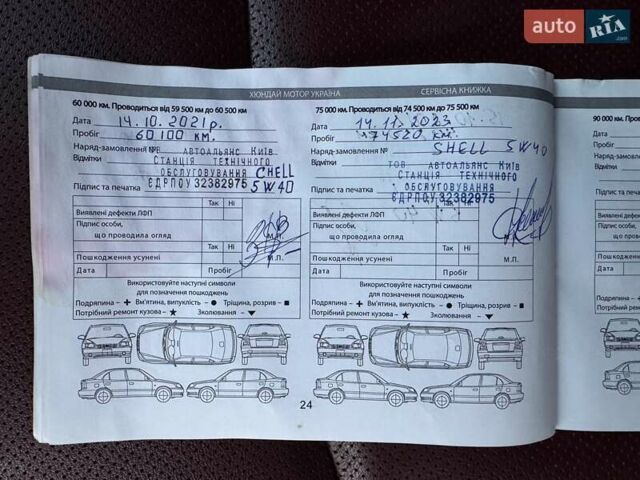 auto RIA .com
ХЮНДАЙ МОТОР УКРАЇНА
СЕРВІСНА КНИЖКА
60 000 км. Проводиться від 59 500 км до 60 500 км
Дата 14.10.2021р.
Пробіг 60 100 км.
Наряд-замовлення №
АВТОАЛЬЯНС КИЇВ
Відмітки СТАНЦІЯ ТЕХНІЧНОГО
ОБСЛУГОВУВАННЯ SHELL
Підпис та печатка ЄДРПОУ 32382975 5W40
Так Ні
Виявлені дефекти ЛФП
Підпис особи,
що проводила огляд
Так Ні
Пошкодження усунені М.П.
Дата Пробіг
Використовуйте наступні символи
для позначення пошкоджень
Подряпина – + Вм'ятина, випуклість – ● Тріщина, розрив – ■
Потрібний ремонт кузова – ★ Зколювання – ▼
75 000 км. Проводиться від 74 500 км до 75 500 км
Дата 14.11.2023
Пробіг 74520 км.
Наряд-замовлення № SHELL 5W40
ТОВ АВТОАЛЬЯНС КИЇВ
Відмітки СТАНЦІЯ ТЕХНІЧНОГО
ОБСЛУГОВУВАННЯ
Підпис та печатка ЄДРПОУ 32382975
Так Ні
Виявлені дефекти ЛФП
Підпис особи,
що проводила огляд
Так Ні
Пошкодження усунені М.П.
Дата Пробіг
Використовуйте наступні символи
для позначення пошкоджень
Подряпина – + Вм'ятина, випуклість – ● Тріщина, розрив – ■
Потрібний ремонт кузова – ★ Зколювання – ▼
24
90 000 км. Пров
Дата
Пробіг
Наряд-замо
Відмітки
Підпис та п
Виявлені
Підпис о
що п
Пошкод
Дата
Подряпи
Потрібни